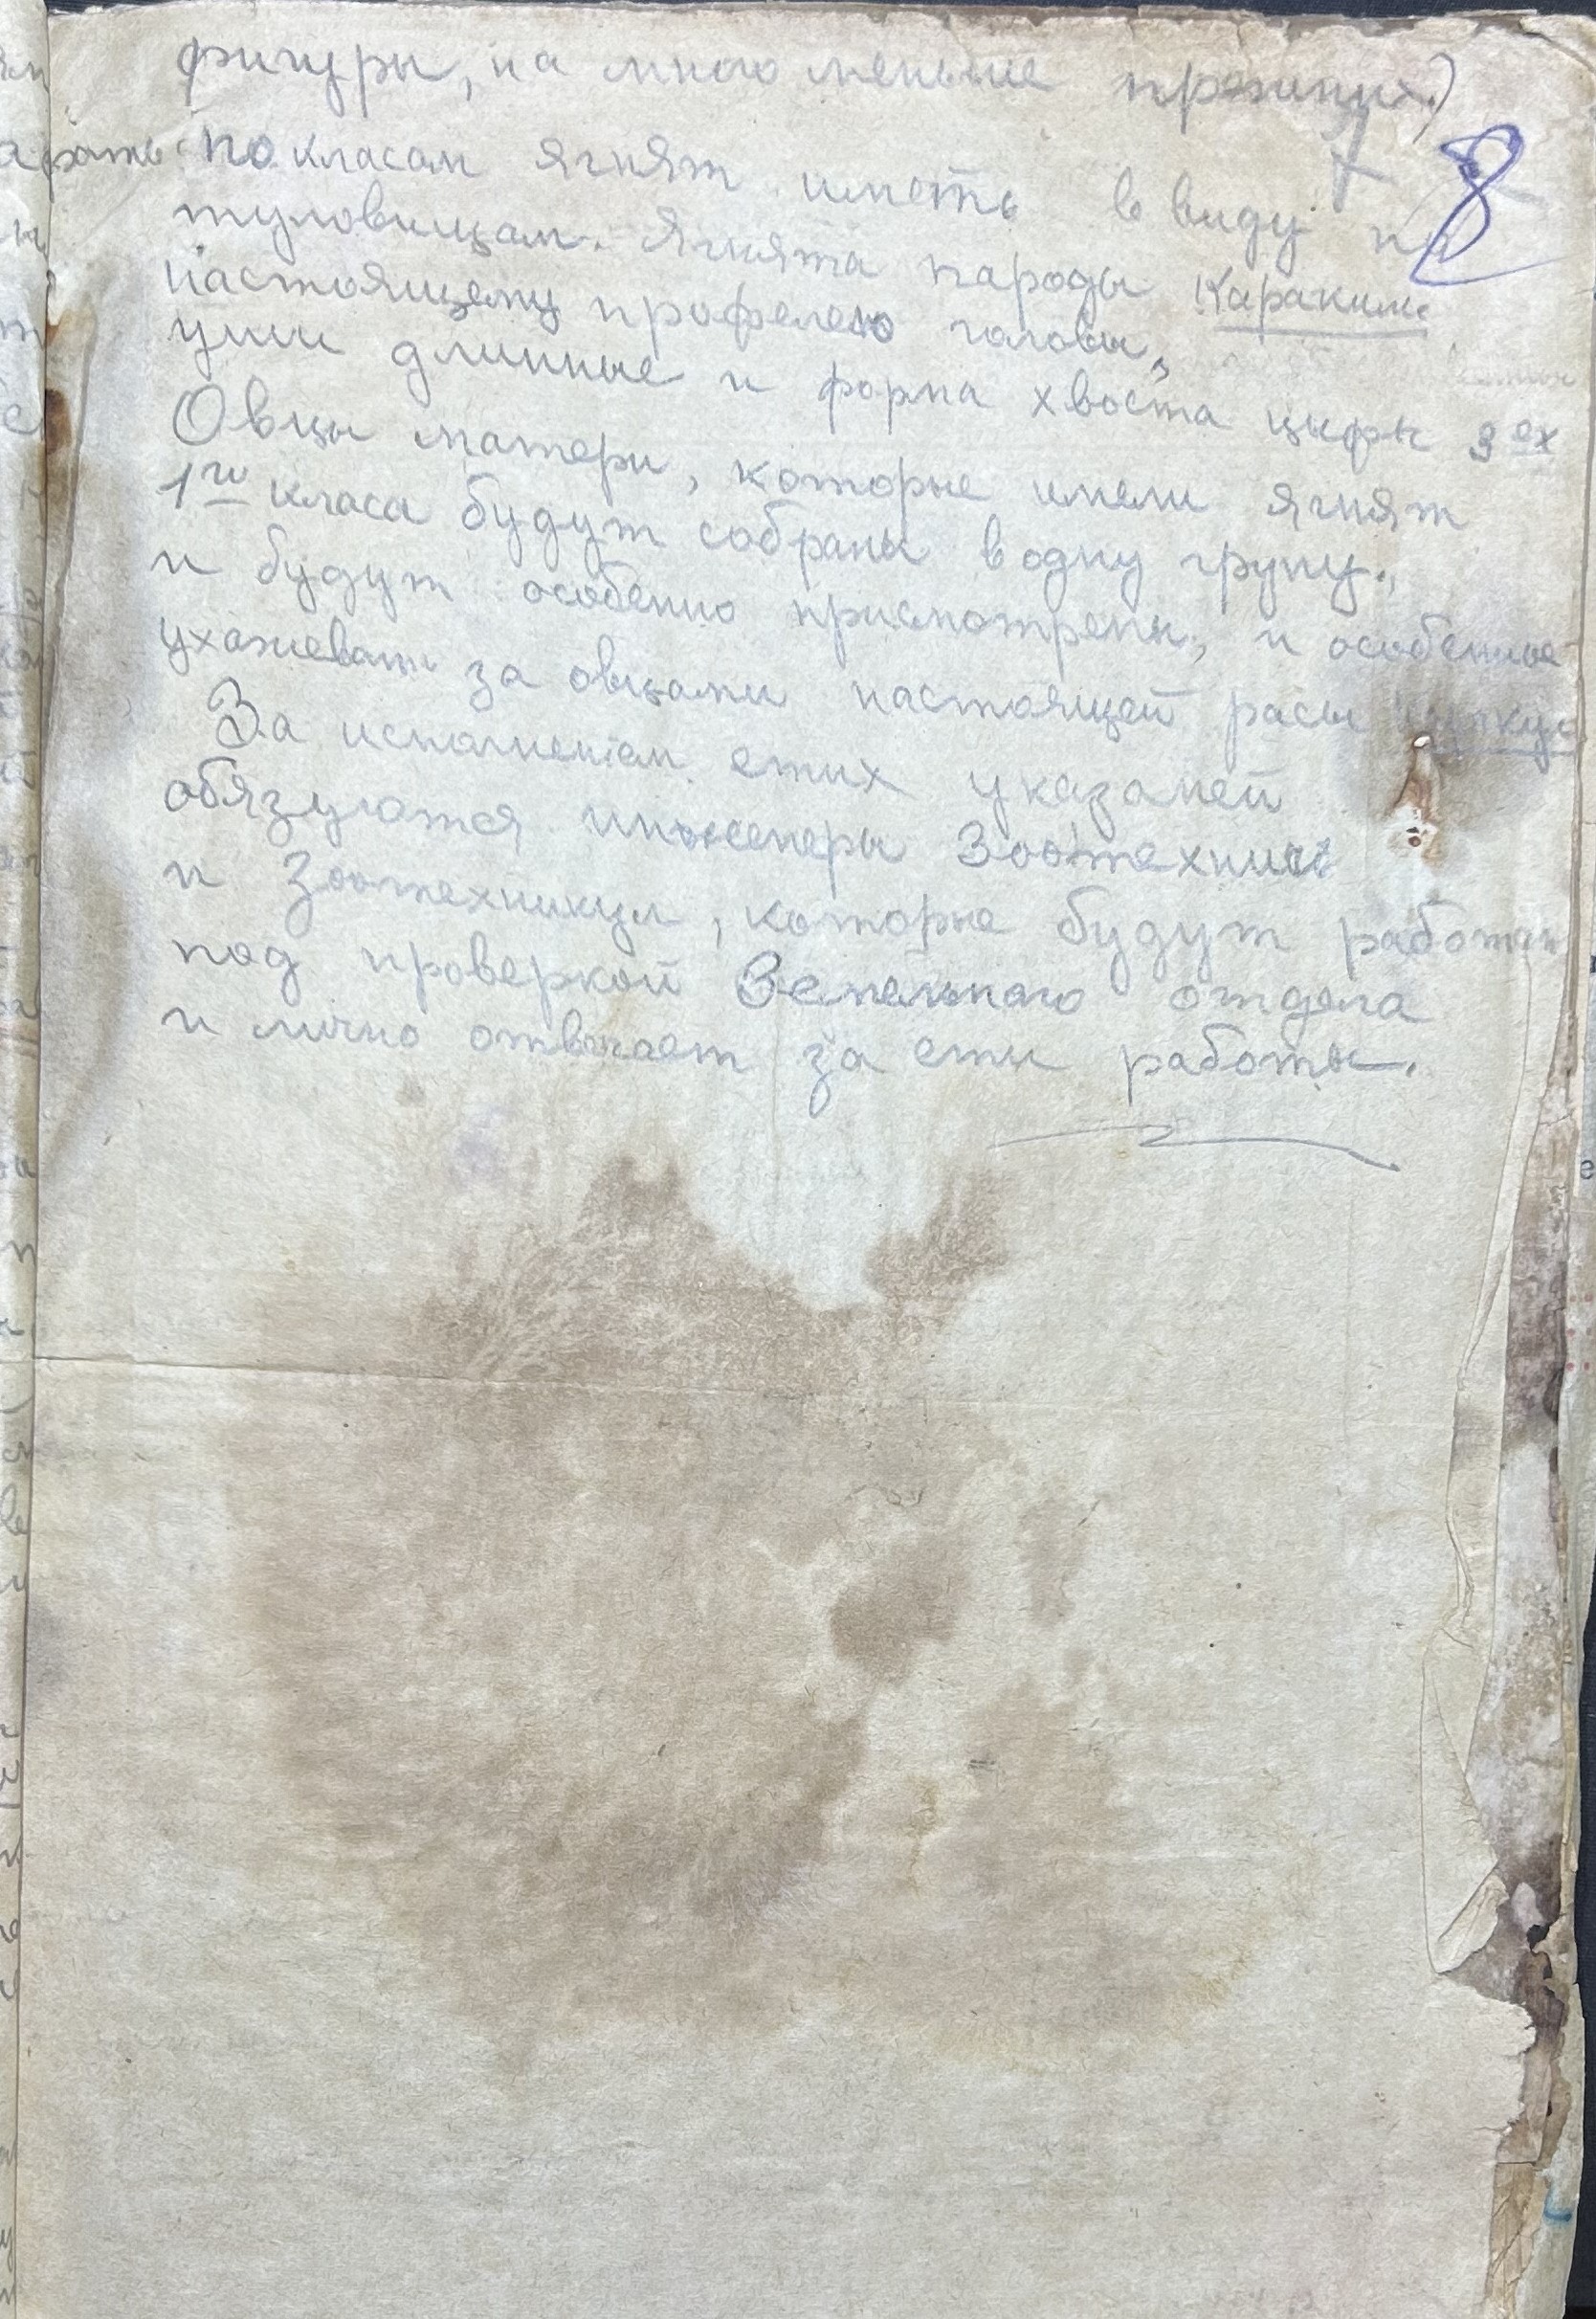 фигуры, на много меньше прежних.)
8
по класам ягнят иметь в виду по
туловищам. Ягнята пароды Каракюль
настоящему профелею головы,
уши длинные и форма хвоста цыфр 3ех
Овцы матери, которые имели ягнят
1го класа будут собраны в одну групу.,
и будут особенно присмотрены, и особенное
ухажевать за овцами настоящей расы
За исполненіем етих указаней
обязуются инженеры Зоотехники
и Зоотехникум, которые будут работать
под проверкой Земельного отдела
и лично отвечает за ети работы.